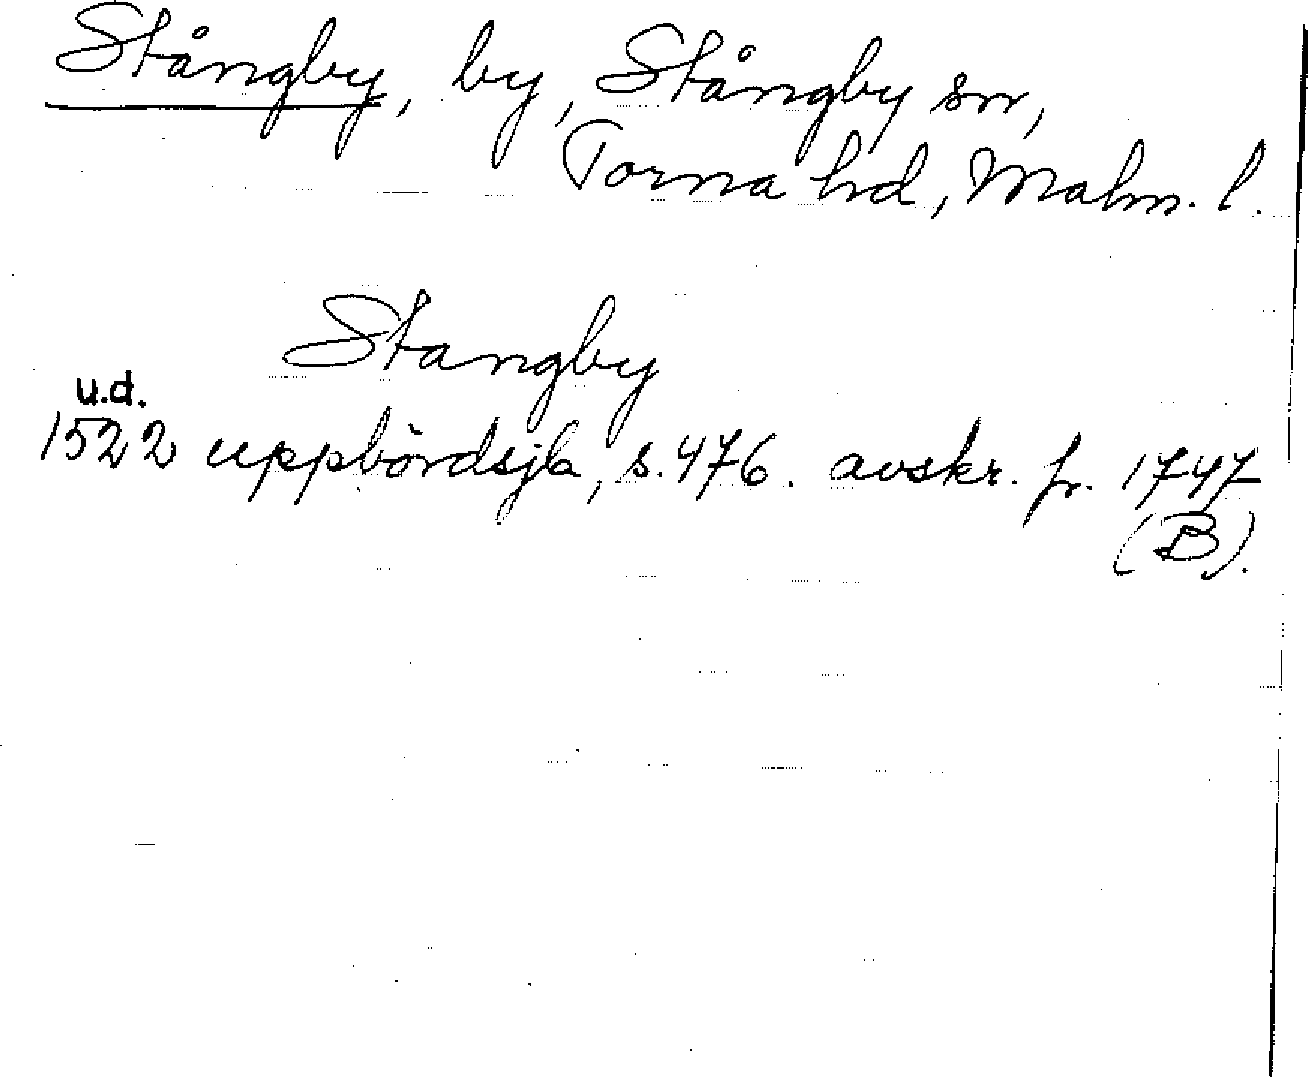 Stångby, by, Stångby sn,
Torna hd, Malm. l.
Stangby
u.d.
1522 uppbördsjb, s. 476. avskr. fr. 1747
(B).